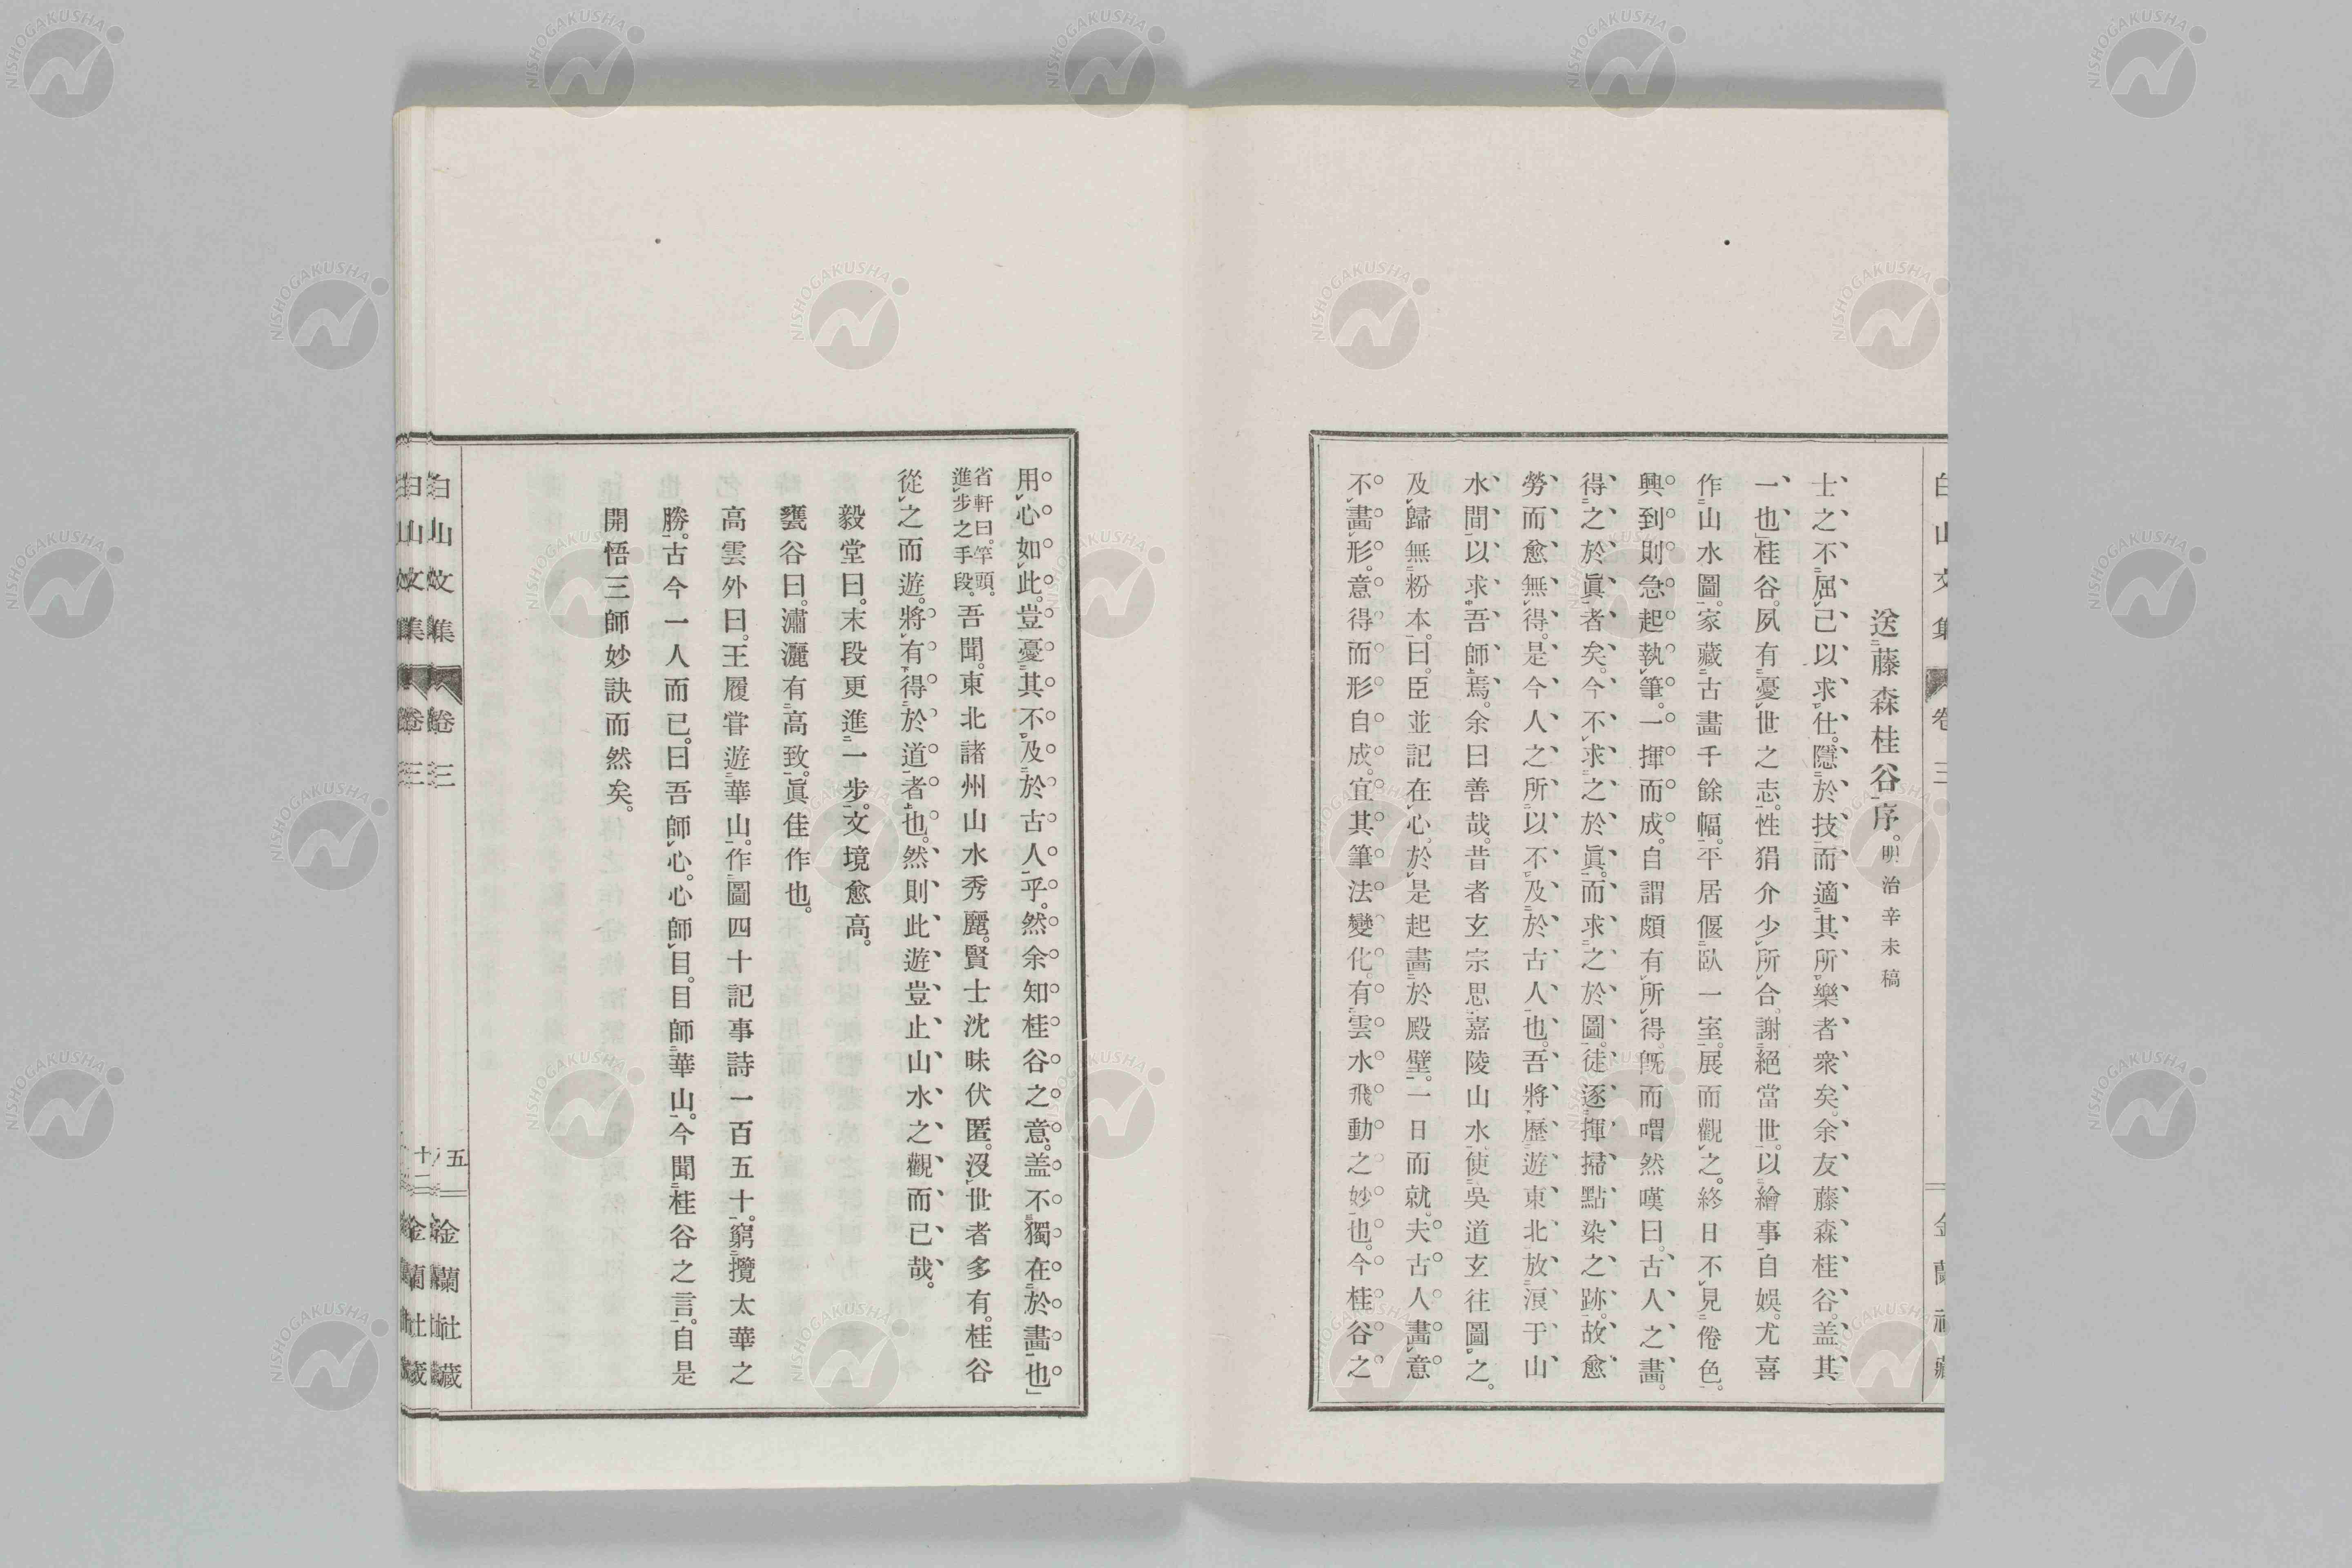 送藤森桂谷序。明治辛未稿
士之不屈己以求仕。隱於技而適其所樂者衆矣。余友藤森桂谷。盖其
一也」桂谷。夙有憂世之志。性狷介少所合。謝絕當世。以繪事自娛。尤喜
作山水圖。家藏古畫千餘幅。平居偃臥一室。展而觀之。終日不見倦色。
興到則急起執筆。一揮而成。自謂頗有所得。旣而喟然嘆曰。古人之畫。
得之於眞者矣。今不求之於眞。而求之於圖。徒逐揮掃點染之跡。故愈
勞而愈無得。是今人之所以不及於古人也。吾將歷遊東北放浪于山
水間。以求吾師焉。余曰善哉。昔者玄宗思嘉陵山水。使吳道玄往圖之。
及歸無粉本。曰。臣並記在心。於是起畵於殿壁。一日而就。夫古人畫意
不畫形。意得而形自成。宜其筆法變化。有雲水飛動之妙也。今桂谷之
用心如此。豈憂其不及於古人乎。然余知桂谷之意。盖不獨在於畫也」
省軒曰。竿頭。
進步之手段。吾聞。東北諸州山水秀麗。賢士沈昧伏匿。沒世者多有。桂谷
從之而遊。將有得於道者也。然則此遊豈止山水之觀而已哉。
毅堂曰。末段更進一步。文境愈高。
甕谷曰。瀟灑有高致。眞佳作也。
高雲外曰。王履嘗遊華山。作圖四十記事詩一百五十。窮攬太華之
勝。古今一人而已。曰吾師心。心師目。目師華山。今聞桂谷之言。自是
開悟三師妙訣而然矣。
白山文集
卷三
五
金蘭社藏